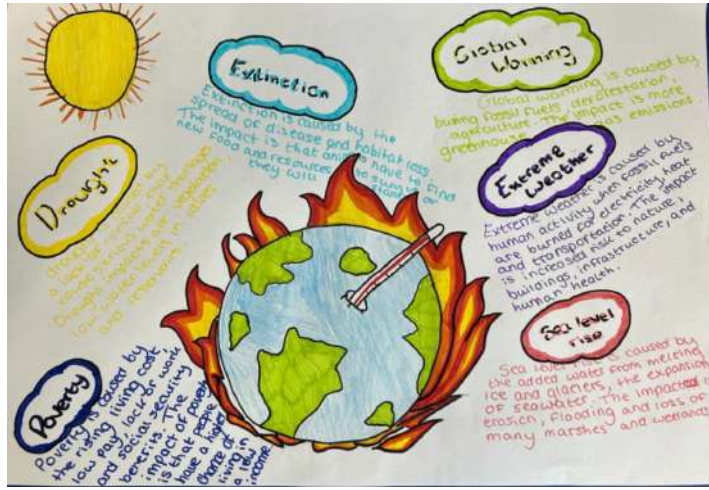 Extinction
Extinction is caused by the
spread of disease and habitat loss
The impact is that animals have to find
new food and resources to survive or
they will starve
Global
Warming
Global warming is caused by
burning fossil fuels, deforestation,
agriculture. The impact is more
greenhouse gas emissions.
Droughts
drought
a lack of
cause
Drought impacts
low water
and reservoirs
Extreme
weather
Extreme weather is caused by
human activity when fossil fuels
are burned for electricity, heat
and transportation. The impact
is increased risk to nature,
buildings, infrastructure, and
human health.
Sea level
rise
Sea level rise is caused by
the added water from melting
ice and glaciers, the expansion
of seawater. The impact is
erosion, flooding and loss of
many marshes and wetlands
Poverty
Poverty is caused by
the rising living cost
low pay, lack of work
and social security
benefits. The
impact of poverty
is that people
have a higher
chance of
living in
a low
income